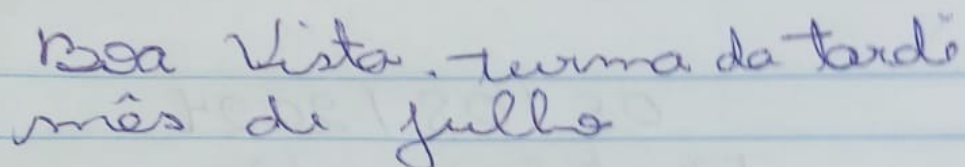 Boa Vista. turma da tarde
mês de julho